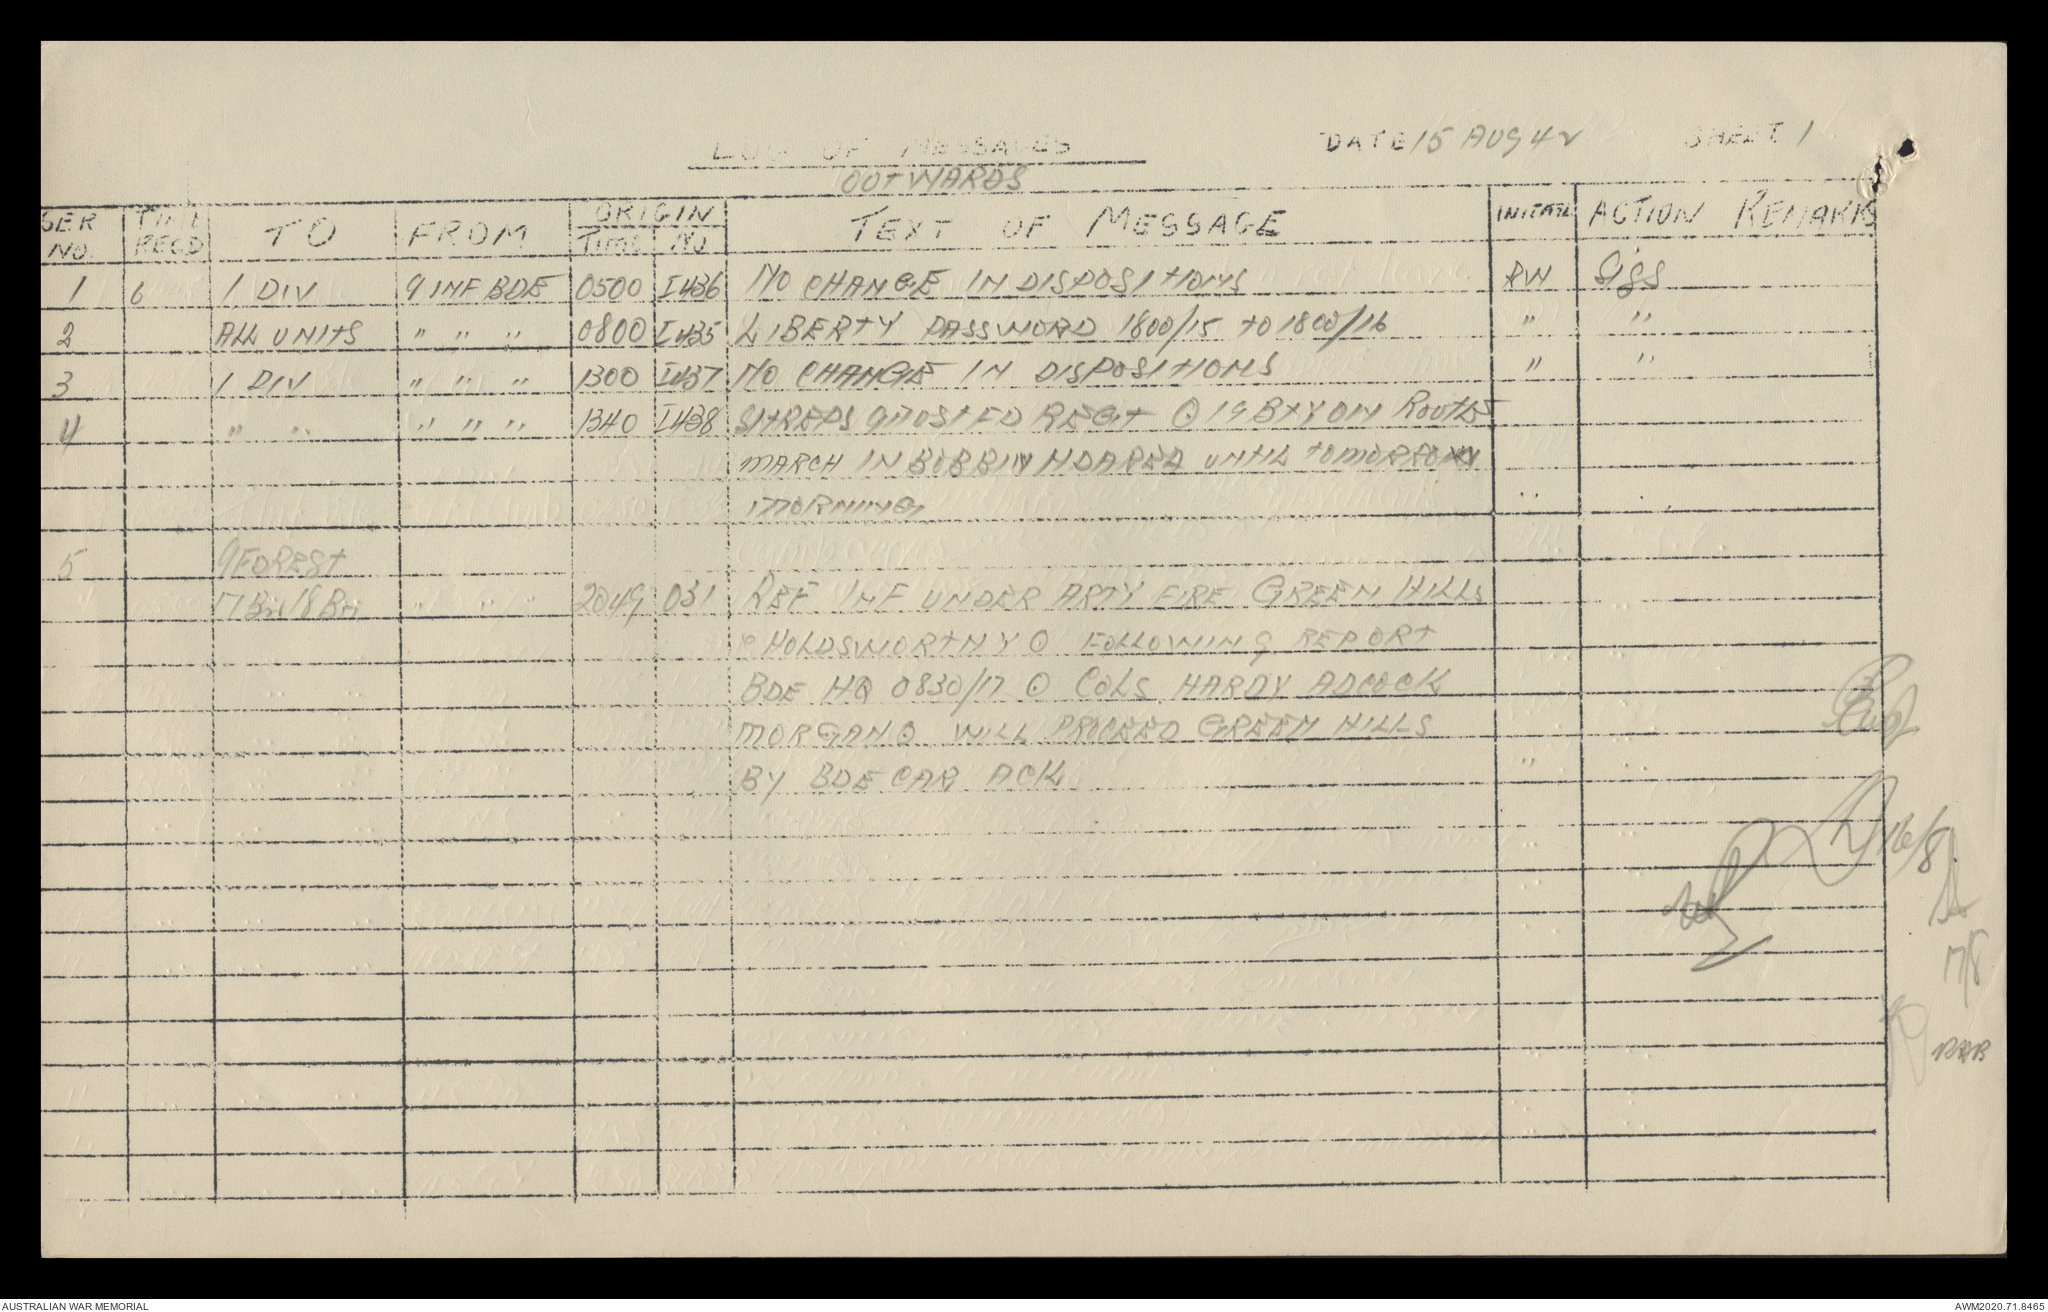 LOG OF MESSAGES DATE 15 AUG 42 SHEET 1
OUTWARDS
SER NO. TIME RECD TO FROM ORIGIN TIME NO TEXT OF MESSAGE INITIAL ACTION REMARKS
1 6 1 DIV 9 INF BDE 0500 I436 NO CHANGE IN DISPOSITIONS RW Sigs
2 ALL UNITS " " " 0800 I435 LIBERTY PASSWORD 1800/15 TO 1800/16 " "
3 1 DIV " " " 1300 I437 NO CHANGE IN DISPOSITIONS " "
4 " " " " " 1340 I438 SITREPS 9 REGT ⊙ 19 BTY ON ROUTE
MARCH IN BOBBIN HD AREA UNTIL TOMORROW
MORNING " "
5 9 FD REGT
17 Bn 18 Bn " " " 2049 031 REF INF UNDER ARTY FIRE GREEN HILLS
HOLDSWORTHY ⊙ FOLLOWING REPORT
BDE HQ 0830/17 ⊙ COLS HARDY ADCOCK
MORGAN ⊙ WILL PROCEED GREEN HILLS
BY BDE CAR ACK "
16/8
17/8
AUSTRALIAN WAR MEMORIAL AWM2020.71.8465